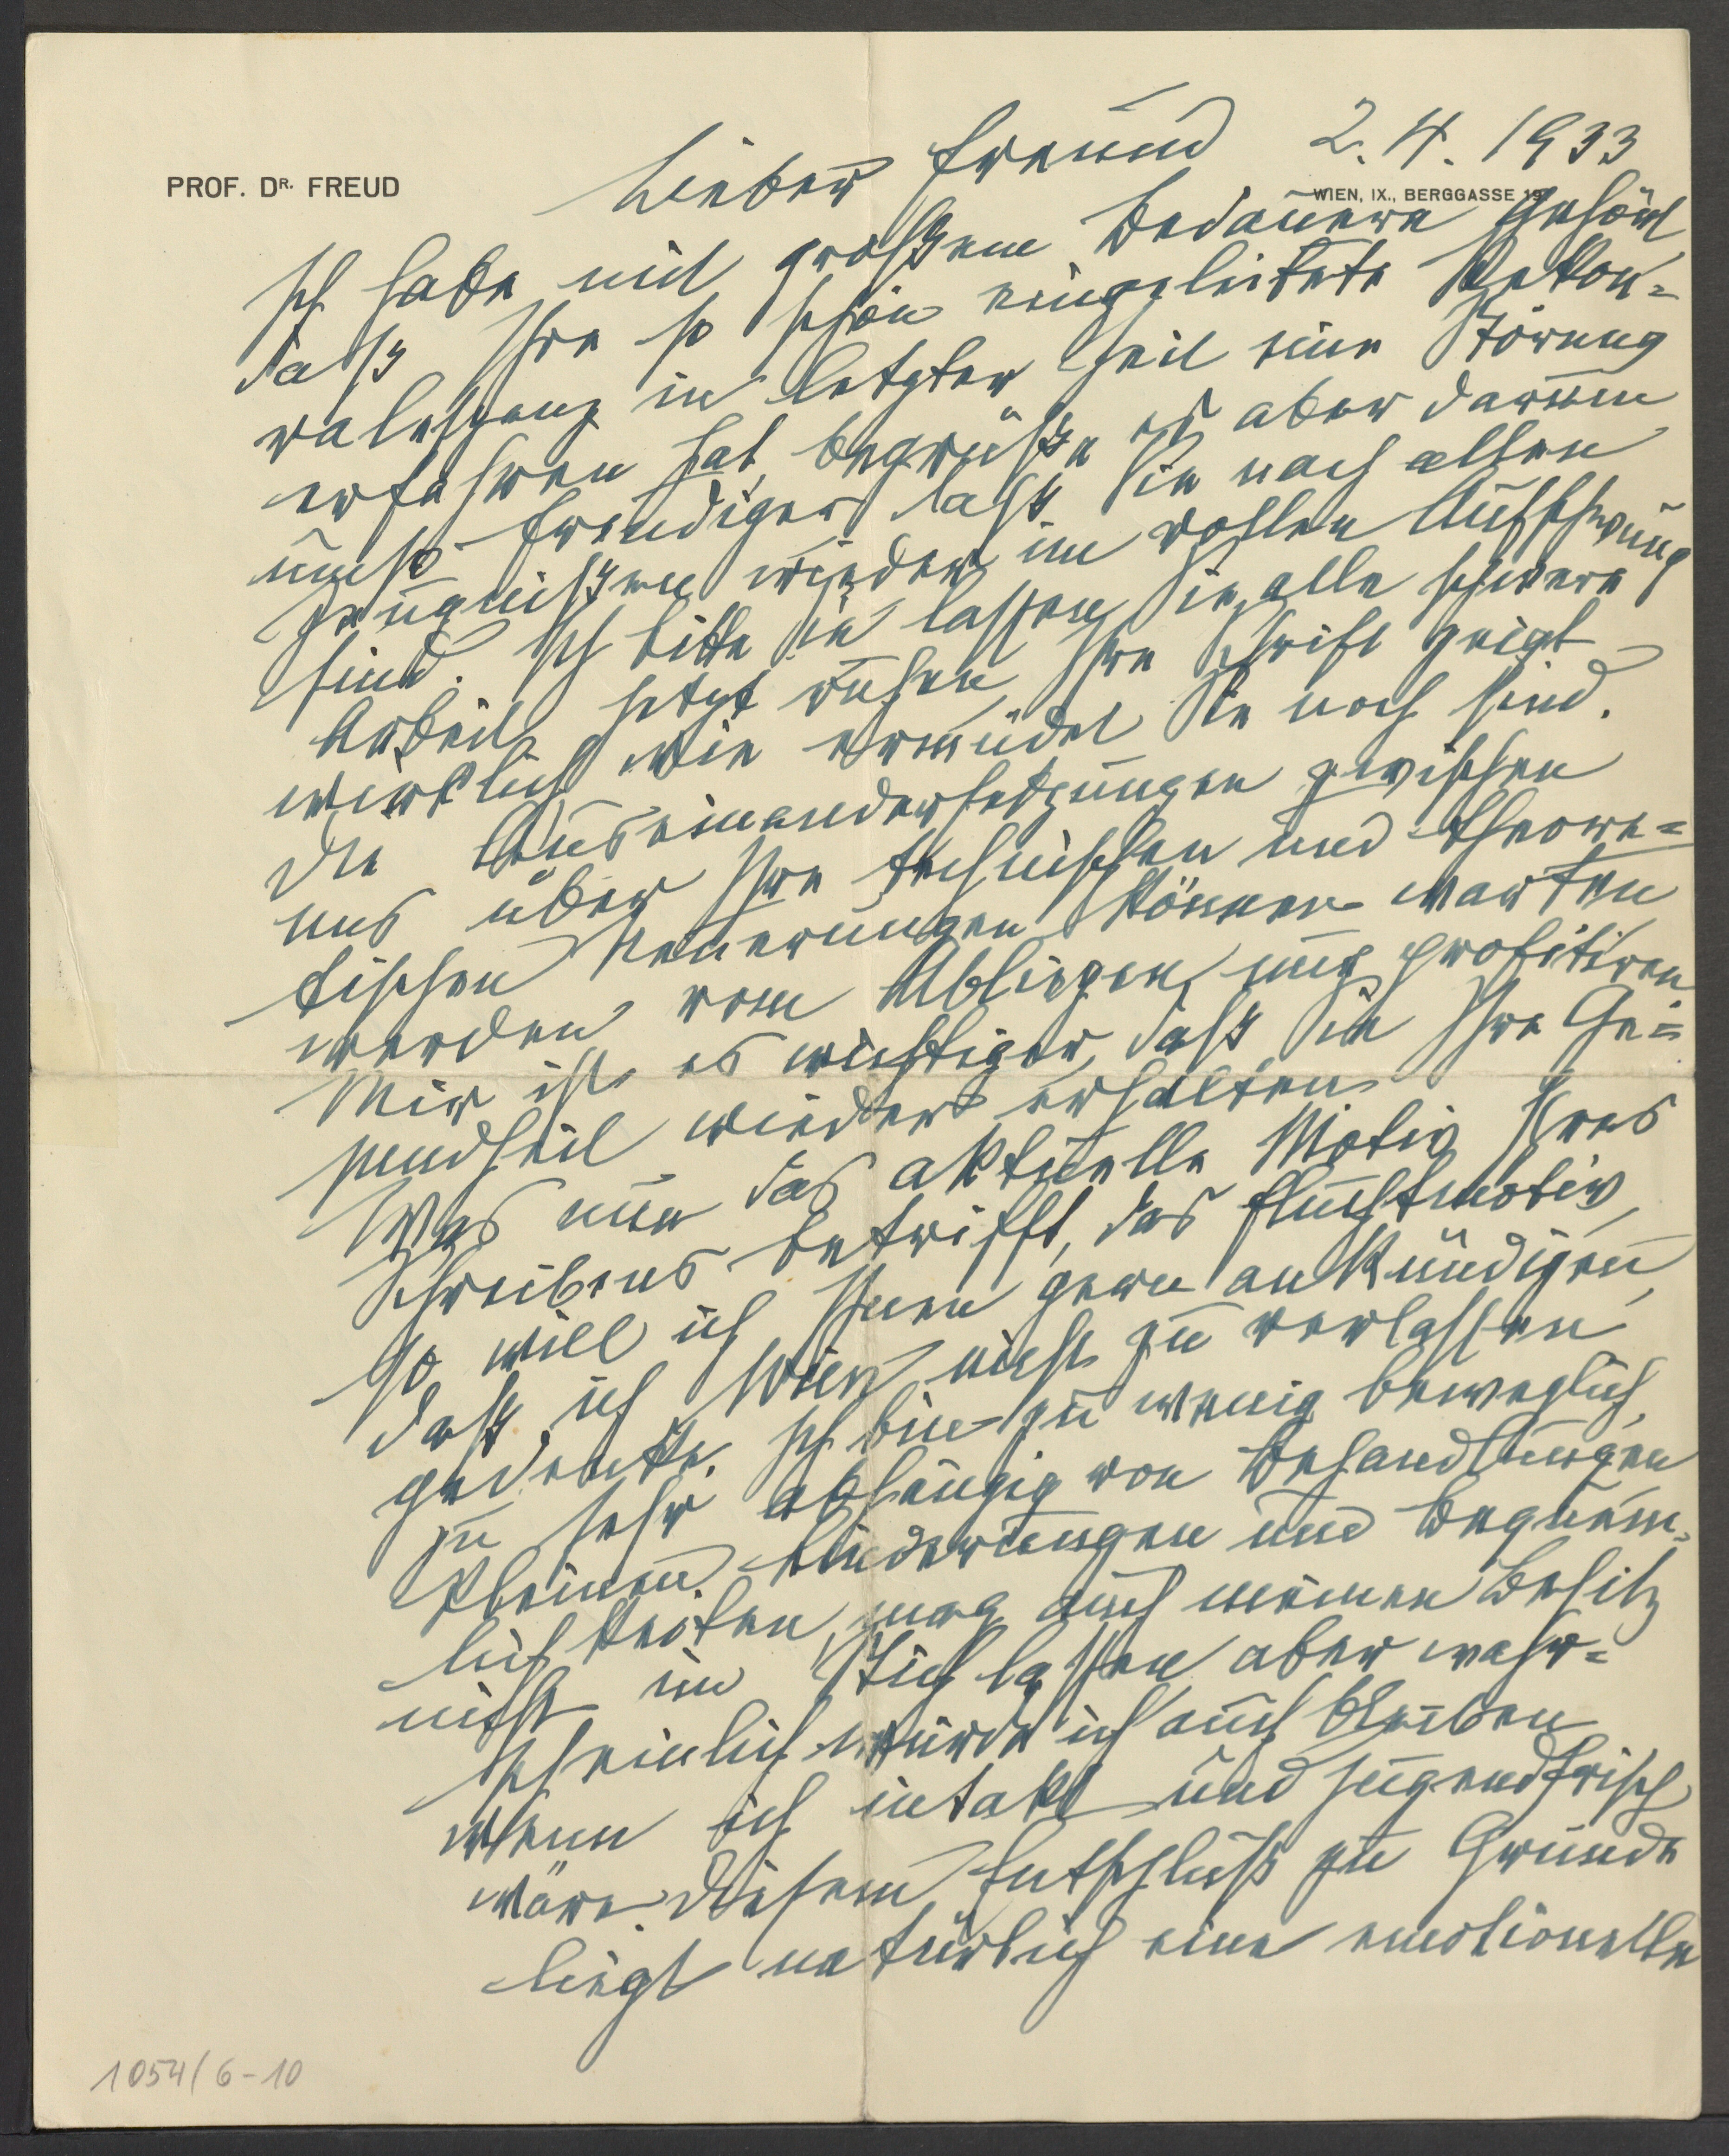 PROF. DR. FREUD
WIEN, IX., BERGGASSE 19
2. 4. 1933
Lieber Freund
Ich habe mit großem Bedauern gehört
daß Ihre so schön eingeleitete Rekon-
valeszenz in letzter Zeit eine Störung
erfahren hat, begrüße es aber darum
umso freudiger daß Sie nach allen
Zeugnissen wieder im vollen Aufschwung
sind. Ich bitte Sie lassen Sie alle schwere
Arbeit jetzt ruhen, Ihre Schrift zeigt
wirklich wie ermüdet Sie noch sind.
Die Auseinandersetzungen zwischen
uns über Ihre technischen und theore-
tischen Neuerungen können warten
werden vom Abliegen nur profitiren.
Mir ist es wichtiger, daß Sie Ihre Ge-
sundheit wieder erhalten.
Was nun das aktuelle Motiv Ihres
Schreibens betrifft, das Fluchtmotiv,
so will ich Ihnen gern ankündigen,
daß ich Wien nicht zu verlassen
gedenke. Ich bin zu wenig beweglich,
zu sehr abhängig von Behandlungen
kleinen Linderungen und Bequem-
lichkeiten, mag auch meinen Besitz
nicht im Stich lassen, aber wahr-
scheinlich würde ich auch bleiben
wenn ich intakt und jugendfrisch
wäre. Diesem Entschluß zu Grunde
liegt natürlich eine emotionelle
1054/6-10